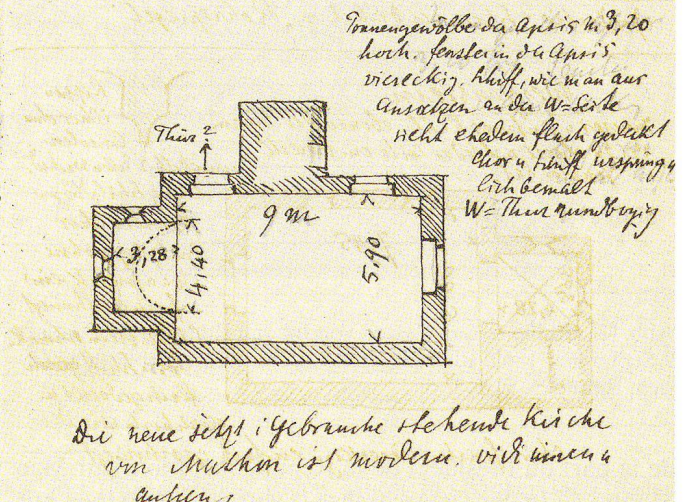 Tonnengewölbe der Apsis m 3,20
hoch. fenster in der Apsis
viereckig. Schiff, wie man aus
Ansætzen an der W=Seite
sieht ehedem flach gedeckt
Chor u Schiff ursprüng
lich bemalt
W=Thür rundbogig
Thür?
9 m
3,28
4,40
5,90
Die neue jetzt i Gebrauche stehende Kirche
von Mathon ist modern. vidi innen u
außen.